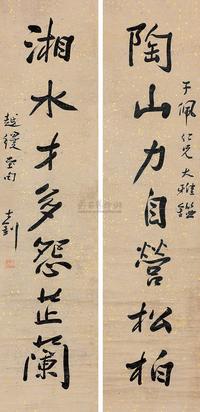 陶山力自營松柏
子佩仁兄大雅鑑
湘水才多怨芷蘭
越縵